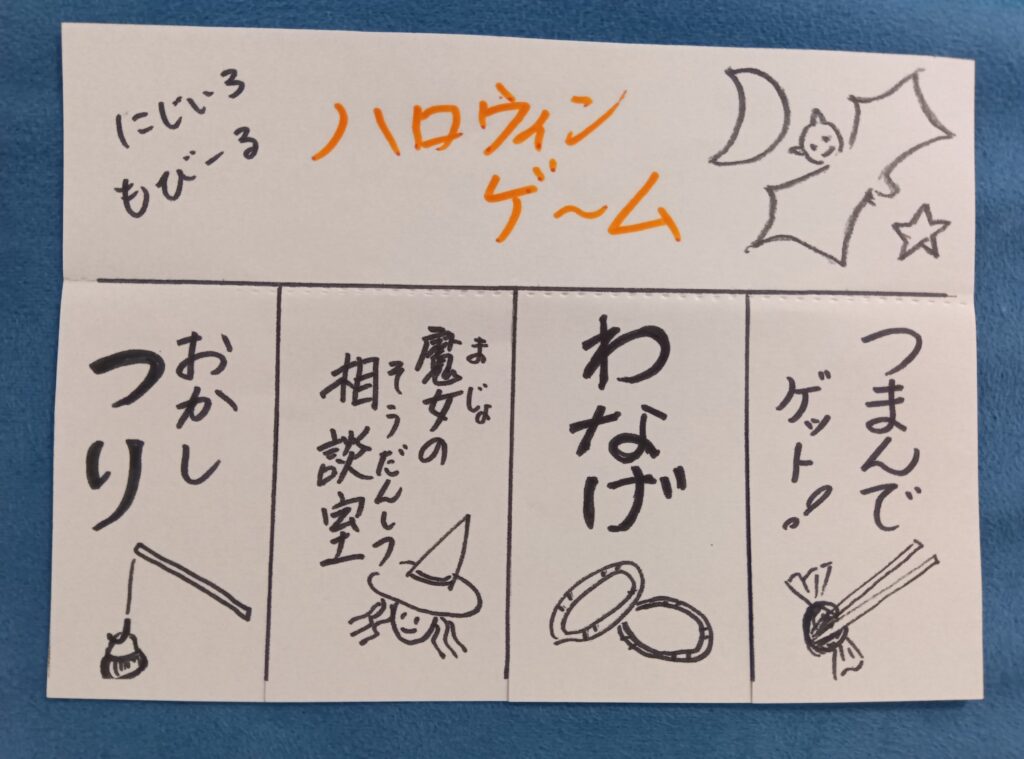 にじいろ
もびーる
ハロウィン
ゲーム
つまんで
ゲット!
わなげ
まじょ
魔女の
そうだんしつ
相談室
おかし
つり